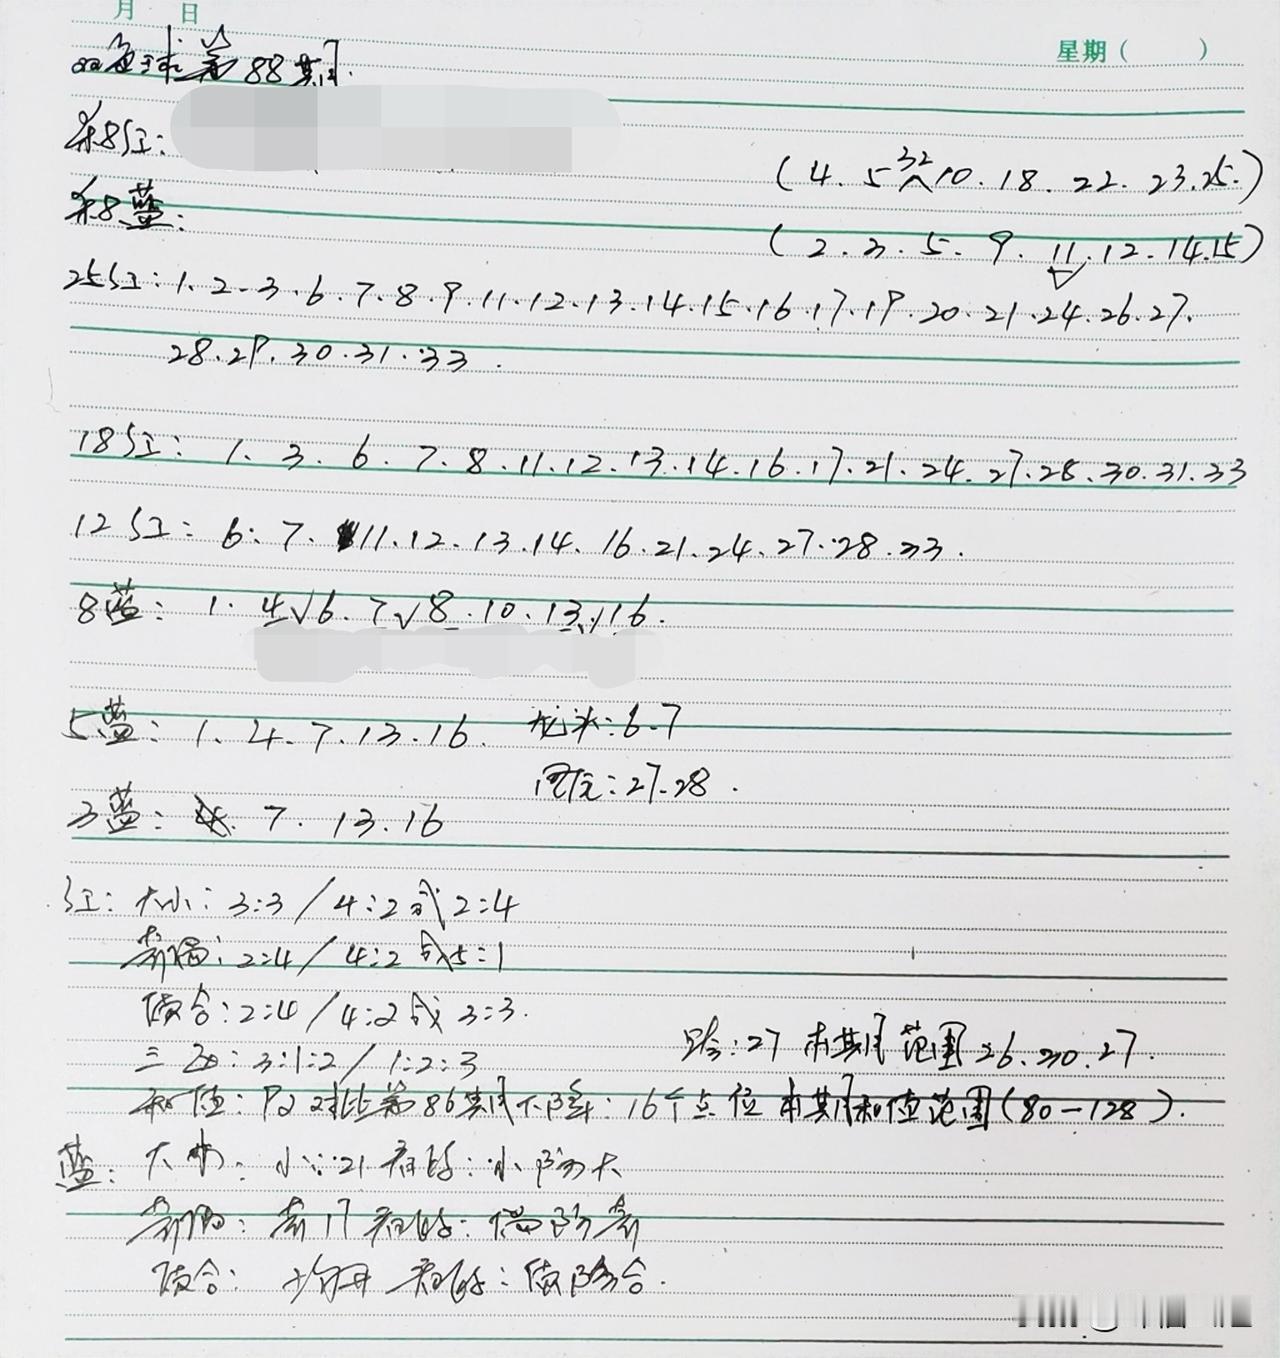 月 日
星期（ ）
双色球第88期.
杀8红: (4. 5 32 10. 18. 22. 23. 25.)
杀8蓝: (2. 3. 5. 9. 11. 12. 14. 15)
25红: 1. 2. 3. 6. 7. 8. 9. 11. 12. 13. 14. 15. 16. 17. 19. 20. 21. 24. 26. 27.
28. 29. 30. 31. 33.
18红: 1. 3. 6. 7. 8. 11. 12. 13. 14. 16. 17. 21. 24. 27. 28. 30. 31. 33
12红: 6. 7. 11. 12. 13. 14. 16. 21. 24. 27. 28. 33.
8蓝: 1. 4√6. 7√8. 10. 13. 16.
5蓝: 1. 4. 7. 13. 16. 龙头: 6. 7
凤尾: 27. 28.
3蓝: 7. 13. 16
红: 大小: 3:3 / 4:2或2:4
奇偶: 2:4 / 4:2或5:1
质合: 2:4 / 4:2或3:3.
三区: 3:1:2 / 1:2:3
跨: 27 本期范围26. 30. 27.
和值: 92对比第86期下降: 16个点位 本期和值范围(80-128).
蓝: 大小: 小 21 看好: 小防大
奇偶: 奇17看好: 偶防奇
质合: 均开 看好: 质防合.